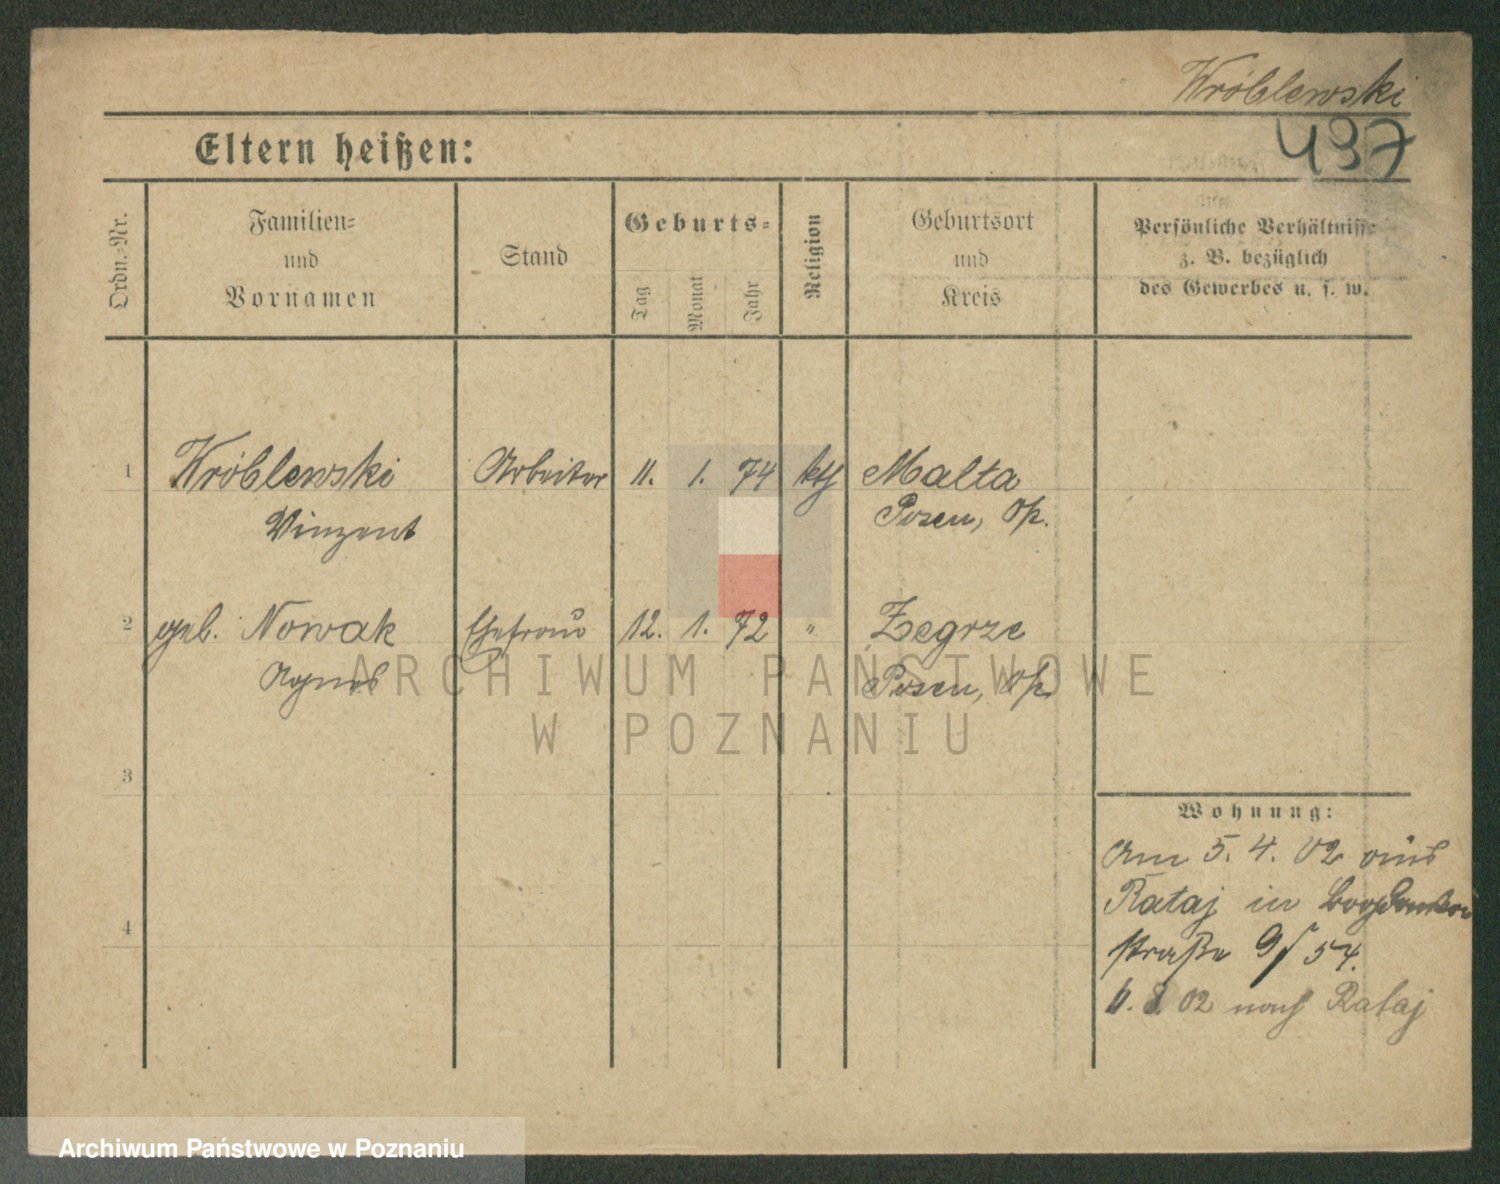 Wróblewski
Eltern heißen:
497
Ordn.-Nr.
Familien-
und
Vornamen
Stand
Geburts-
Tag
Monat
Jahr
Religion
Geburtsort
und
Kreis
Persönliche Verhältnisse
z. B. bezüglich
des Gewerbes u. s. w.
1 Wróblewski Arbeiter 11. 1. 74 kth Malta
Vinzent Posen, Op.
2 geb. Nowak Ehefrau 12. 1. 72 " Zegrze
Agnes Posen, Op.
ARCHIWUM PAŃSTWOWE
W POZNANIU
3
4
Wohnung:
Am 5. 4. 02 aus
Rataj in
straße 9/ 54.
8. 02 nach Rataj
Archiwum Państwowe w Poznaniu